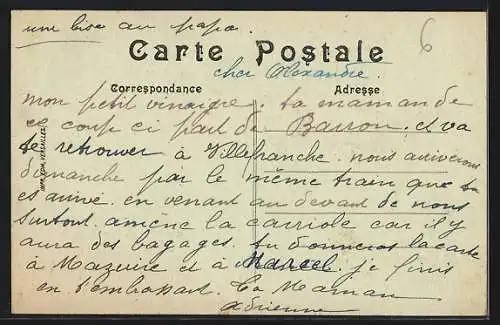 une bise au papa
6
Carte Postale
cher Alexandre.
Correspondance
Adresse
mon petit vinaigre. ta maman de
ce coup ci part de Barron. et va
te retrouver à Villefranche. nous arriverons
dimanche par le même train que tu
es arrivé. en venant au devant de nous
surtout. amène la carriole car il y
aura des bagages. tu donneras la carte
à Mazuire et à Marcel. je finis
en t'embrassant. Ta Maman
Adrienne